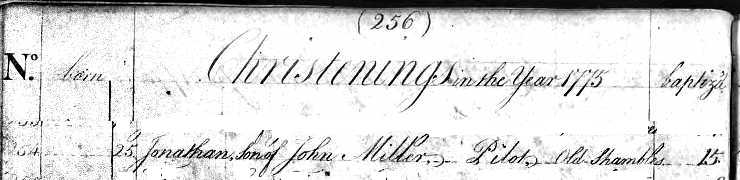 (256)
No. born Christenings in the Year 1773 baptiz'd
25 Jonathan, Son of John Miller, Pilot, Old Shambles 15